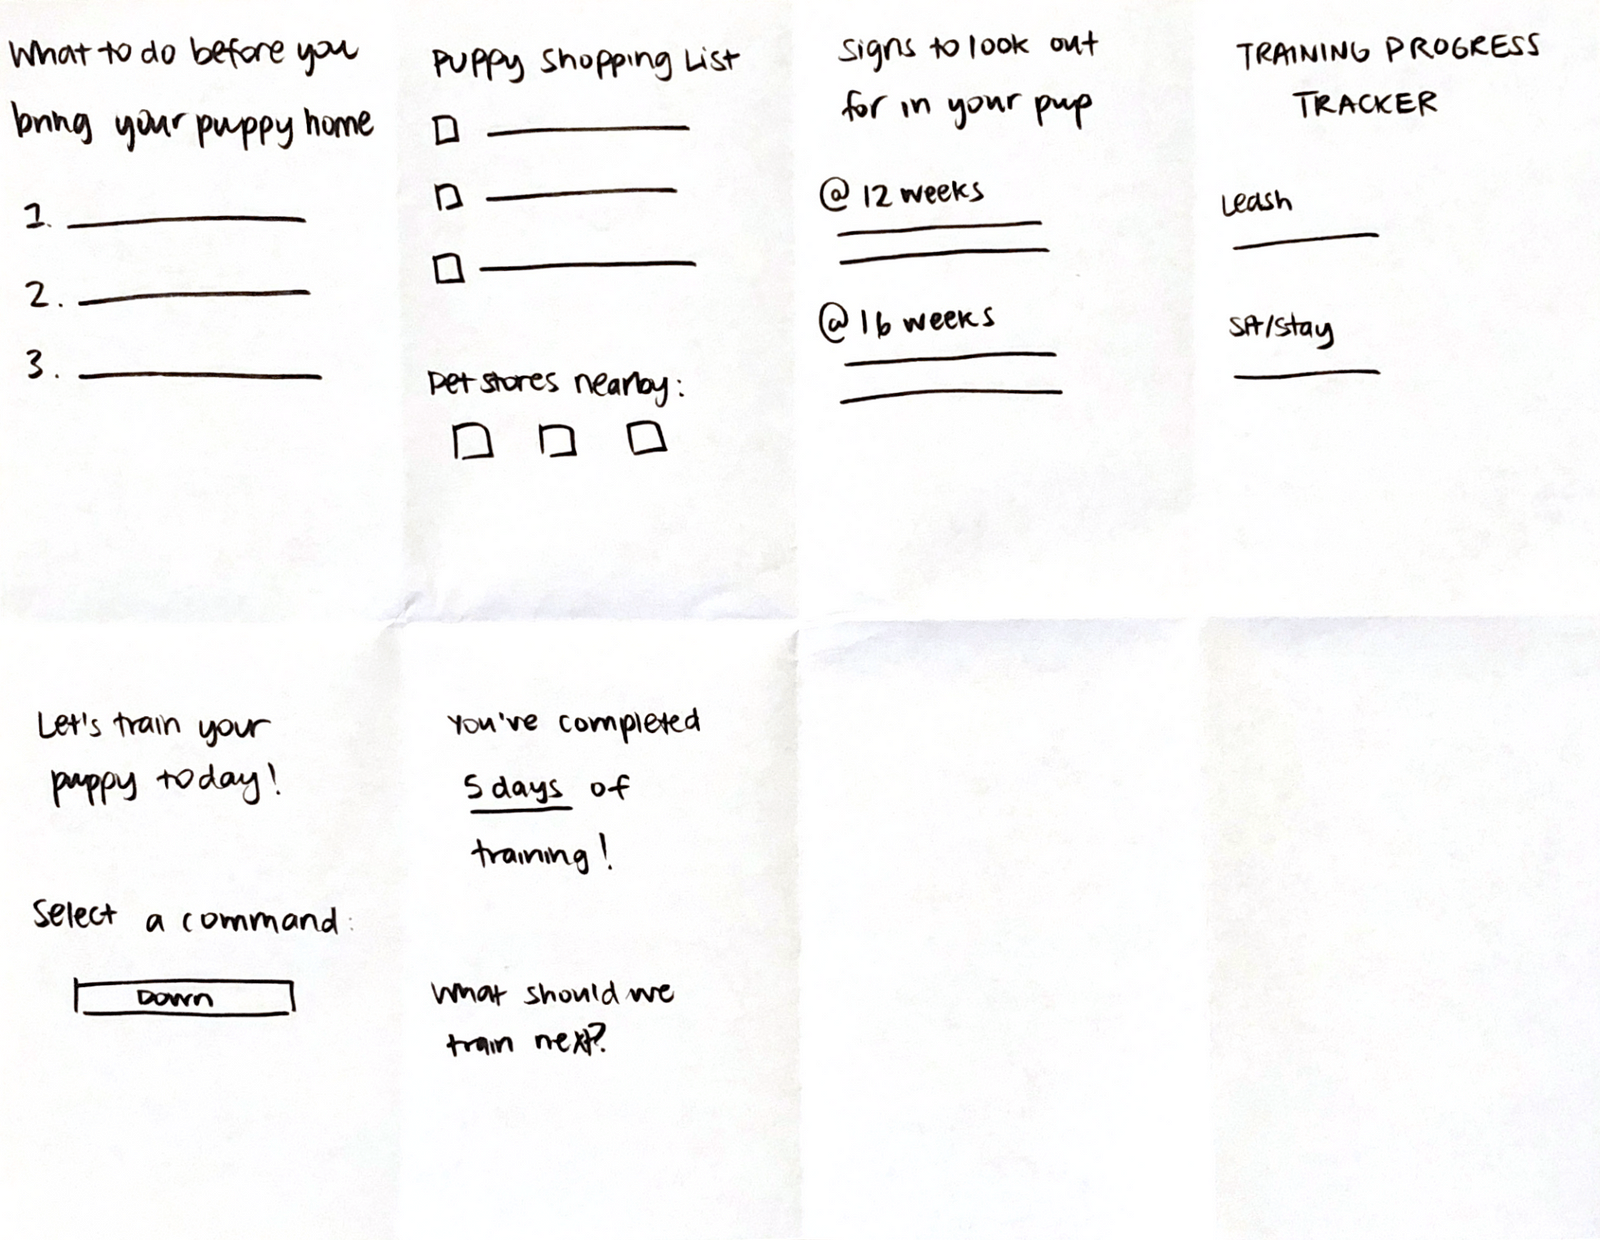 What to do before you
bring your puppy home
1.
2.
3.
Puppy Shopping List
Pet stores nearby:
Signs to look out
for in your pup
@ 12 weeks
@ 16 weeks
TRAINING PROGRESS
TRACKER
Leash
Sit/Stay
Let's train your
puppy today!
Select a command:
DOWN
You've completed
5 days of
training!
What should we
train next?